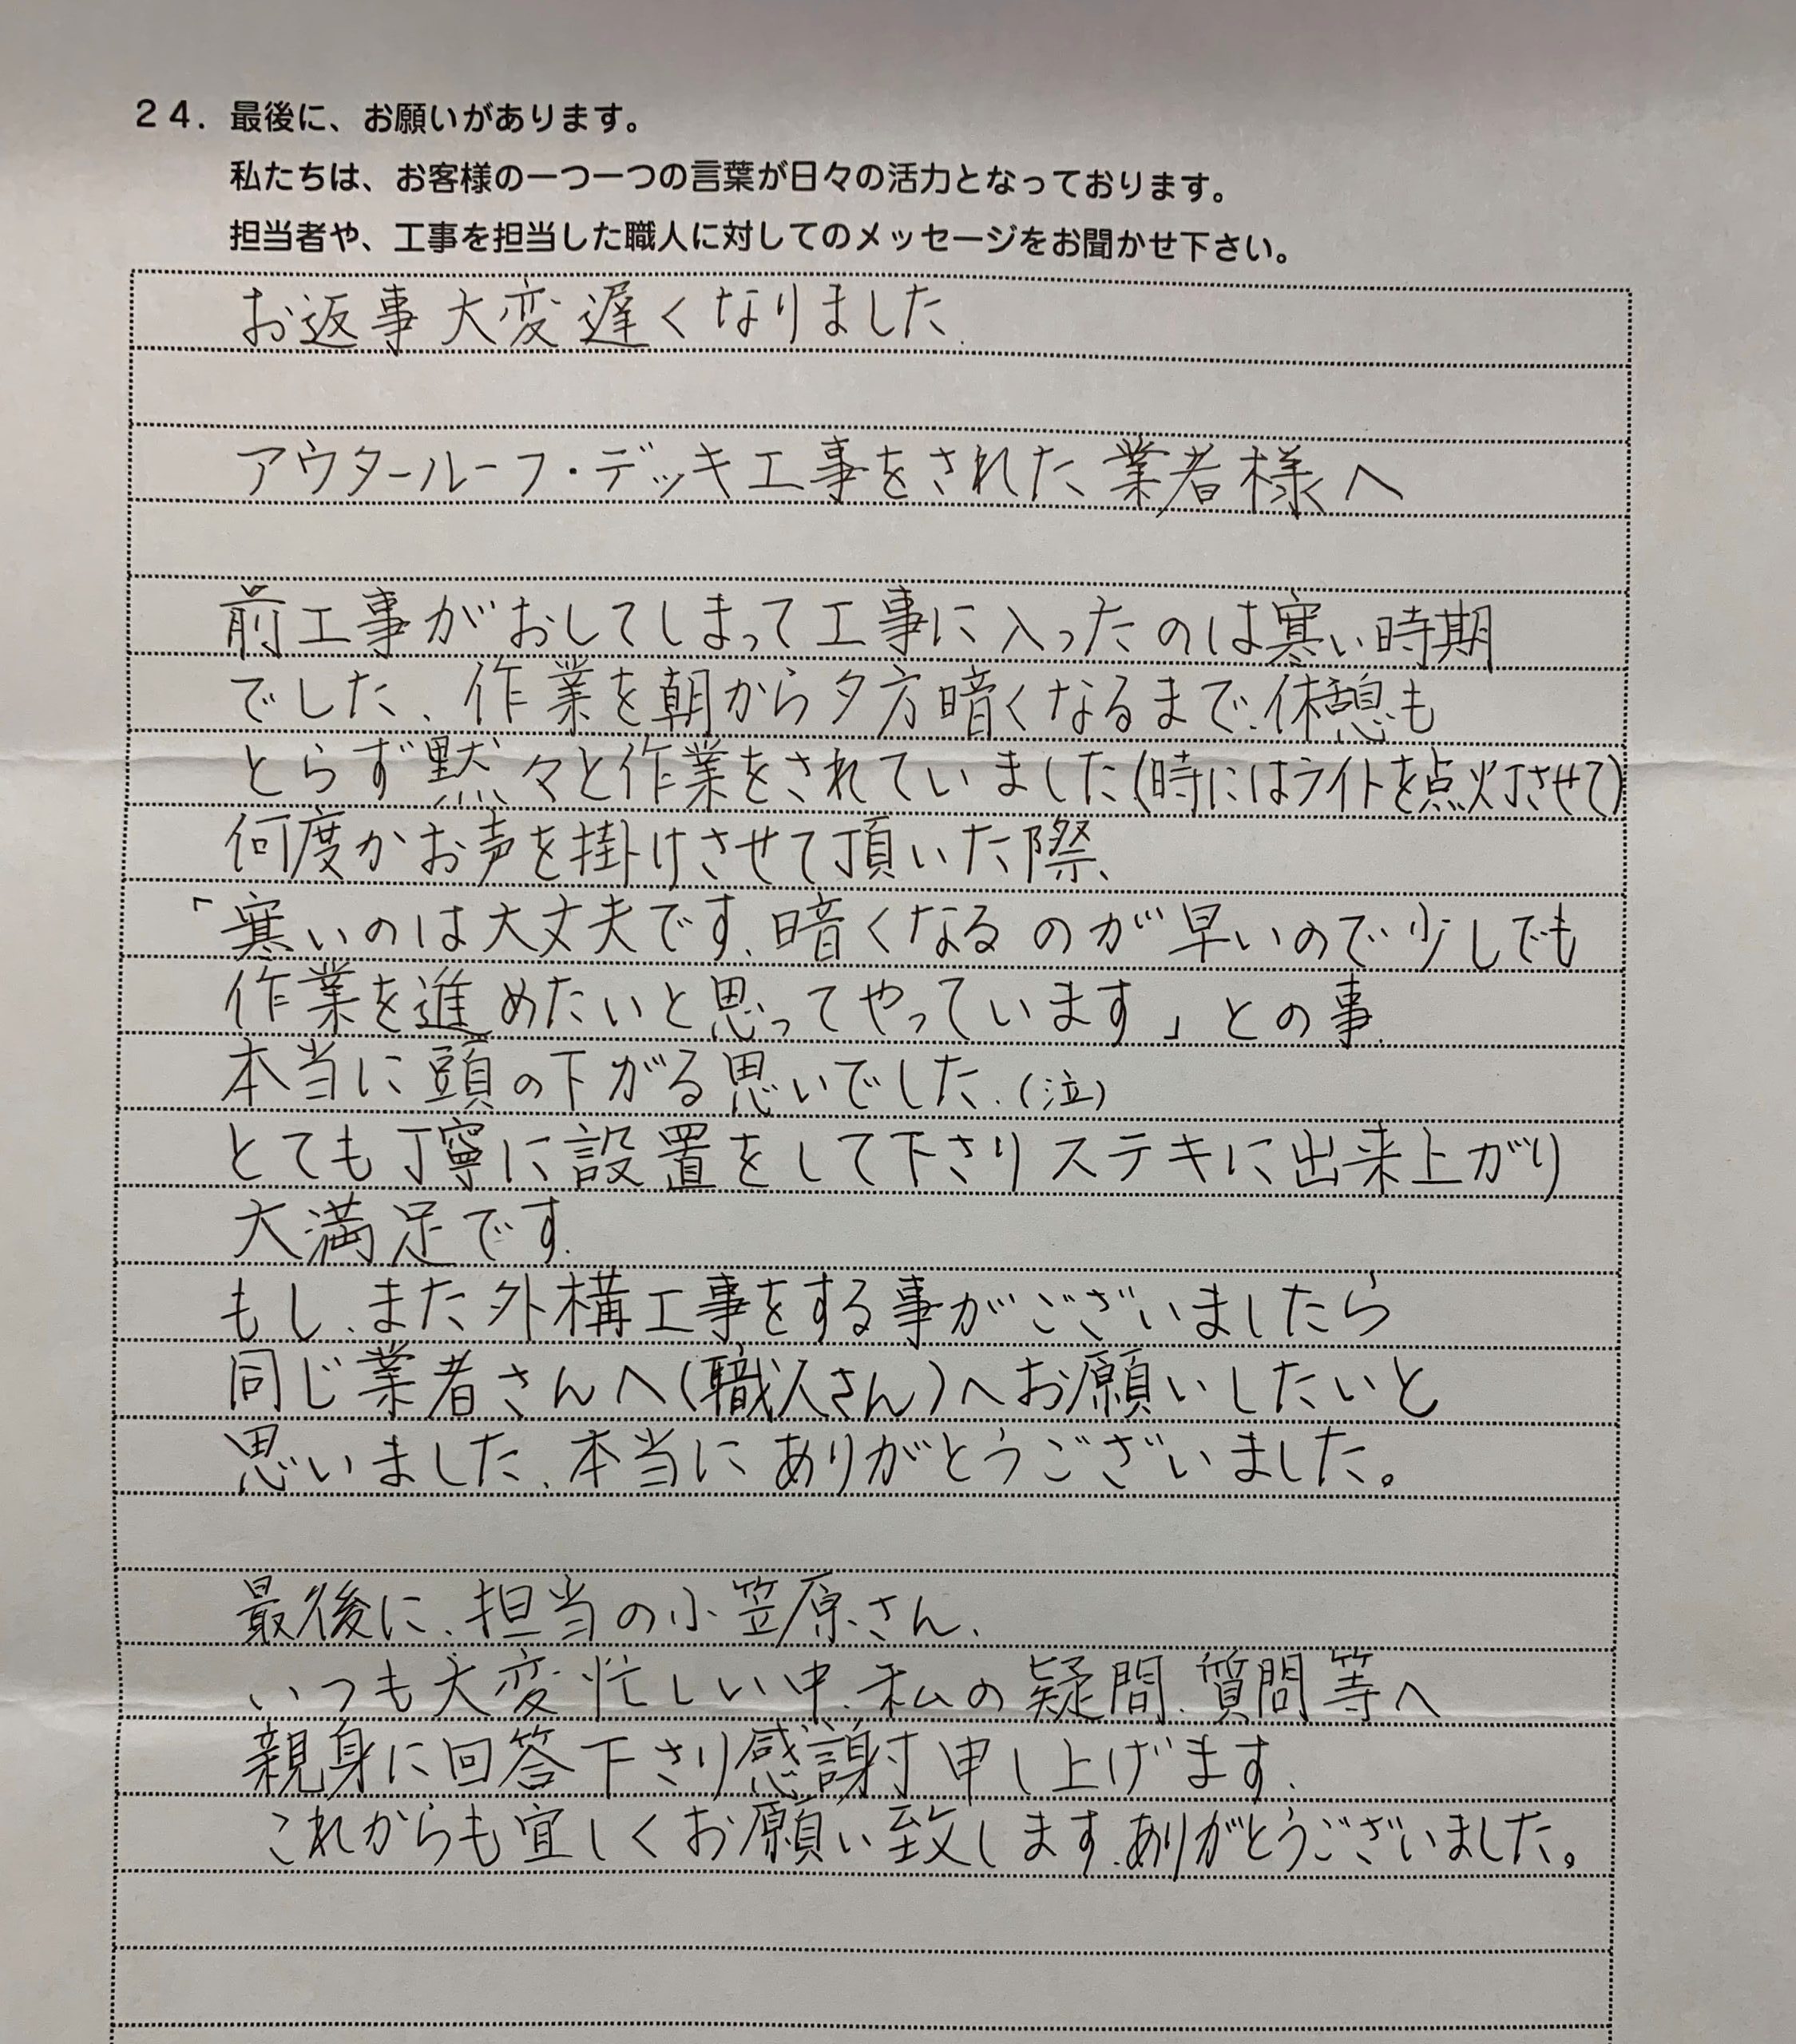 24. 最後に、お願いがあります。
私たちは、お客様の一つ一つの言葉が日々の活力となっております。
担当者や、工事を担当した職人に対してのメッセージをお聞かせ下さい。
お返事大変遅くなりました.
アウタールーフ・デッキ工事をされた業者様へ
前工事がおしてしまって工事に入ったのは寒い時期
でした、作業を朝から夕方暗くなるまで、休憩も
とらず黙々と作業をされていました(時にはライトを点灯させて)
何度かお声を掛けさせて頂いた際、
「寒いのは大丈夫です、暗くなるのが早いので少しでも
作業を進めたいと思ってやっています」との事.
本当に頭の下がる思いでした.(泣)
とても丁寧に設置をして下さりステキに出来上がり
大満足です.
もし、また外構工事をする事がございましたら
同じ業者さんへ(職人さん)へお願いしたいと
思いました、本当にありがとうございました。
最後に、担当の小笠原さん、
いつも大変忙しい中、私の疑問、質問等へ
親身に回答下さり感謝申し上げます.
これからも宜しくお願い致します.ありがとうございました。